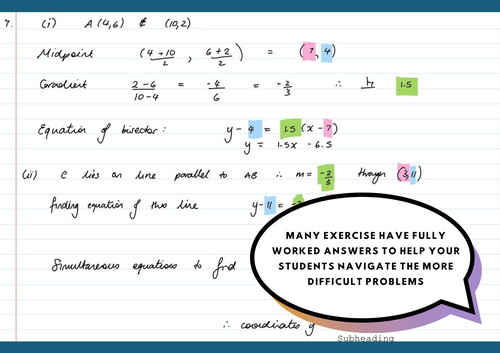 7. (i) A(4,6) & (10,2)
Midpoint (4+10/2, 6+2/2) = (7, 4)
Gradient 2-6/10-4 = -4/6 = -2/3 ∴ 1.5
Equation of bisector: y-4 = 1.5(x-7)
y = 1.5x - 6.5
(ii) C lies on line parallel to AB ∴ m = -2/3 through (3,11)
finding equation of this line y-11 =
Simultaneous equations to find
∴ coordinates
MANY EXERCISE HAVE FULLY
WORKED ANSWERS TO HELP YOUR
STUDENTS NAVIGATE THE MORE
DIFFICULT PROBLEMS
Subheading